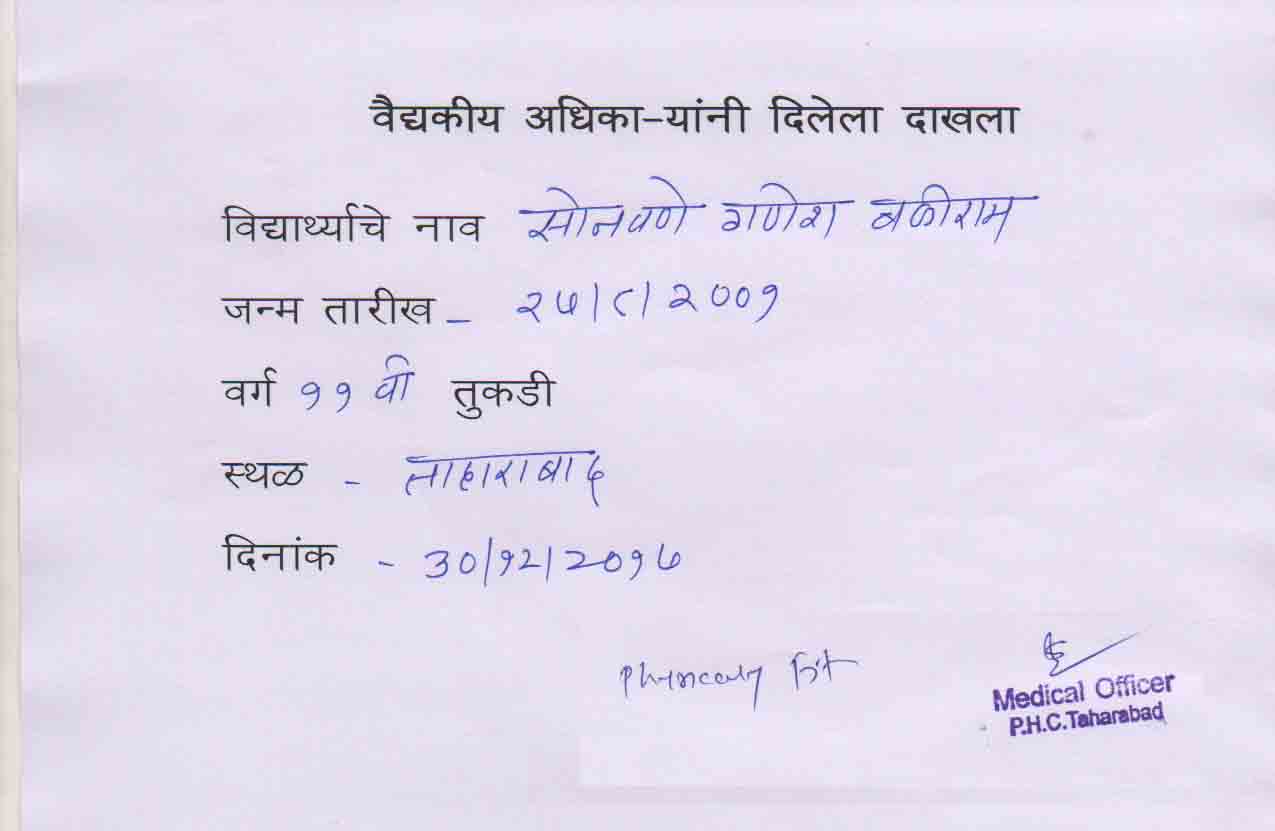 वैद्यकीय अधिका-यांनी दिलेला दाखला
विद्यार्थ्याचे नाव सोनवणे गणेश बळीराम
जन्म तारीख - २५/८/२००१
वर्ग ११ वी तुकडी
स्थळ - ताहाराबाद
दिनांक - 30/१२/२०१५
Physically Fit
Medical Officer
P.H.C.Taharabad